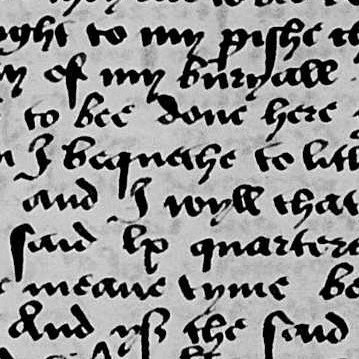 ght to my pishe
of my buryall
to bee done here
I bequethe to
and I wyll that
said lx quartere
meane tyme be
And yff the said